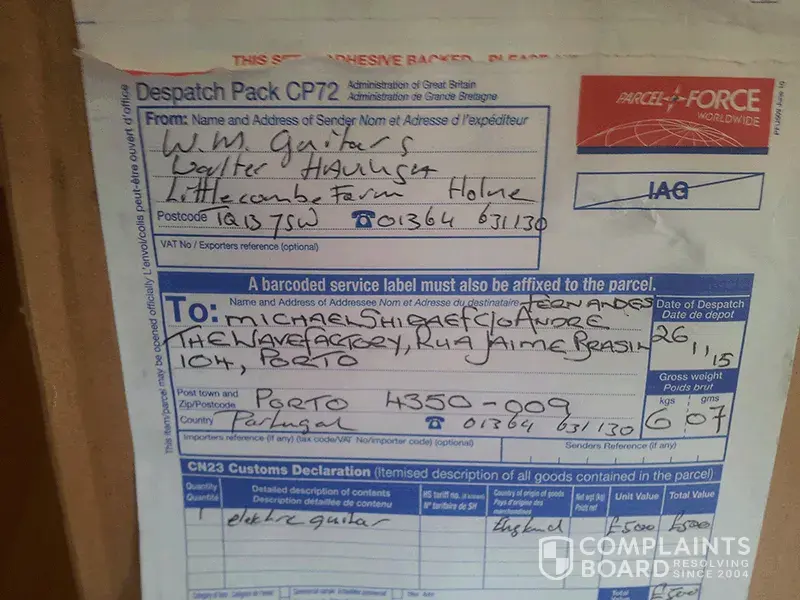 THIS SE ADHESIVE BACKED PLEASE
Despatch Pack CP72 Administration of Great Britain
Administration de Grande Bretagne
PARCEL FORCE
WORLDWIDE
This item/parcel may be opened officially L'envoi/colis peut-être ouvert d'office
From: Name and Address of Sender Nom et Adresse d l'expéditeur
W.M. Guitars
Walter
Littlecombe Farm Holne
Postcode TQ13 7SW ☎01364 631130
VAT No / Exporters reference (optional)
IAG
A barcoded service label must also be affixed to the parcel.
To: Name and Address of Addressee Nom et Adresse du destinataire FERNANDES
MICHAEL C/O ANDRE
THE WAVE FACTORY, RUA JAIME BRASIN
104, PORTO
Post town and
Zip/Postcode PORTO 4350-009
Country Portugal ☎ 01364 631130
Importers reference (if any) (tax code/VAT No/importer code) (optional)
Senders Reference (if any)
Date of Despatch
Date de depot
26 11 15
Gross weight
Poids brut
kgs gms
6 07
CN23 Customs Declaration (Itemised description of all goods contained in the parcel)
Quantity
Quantité
Detailed description of contents
Description détaillée de contenu
HS tariff no. (if known)
N° tarifaire de SH
Country of origin of goods
Pays d'origine des
marchandises
Net wgt (kg)
Poids net
Unit Value
Total Value
1 elektric guitar England £500 £500
Total
Value £500
COMPLAINTS
BOARD RESOLVING
SINCE 2004